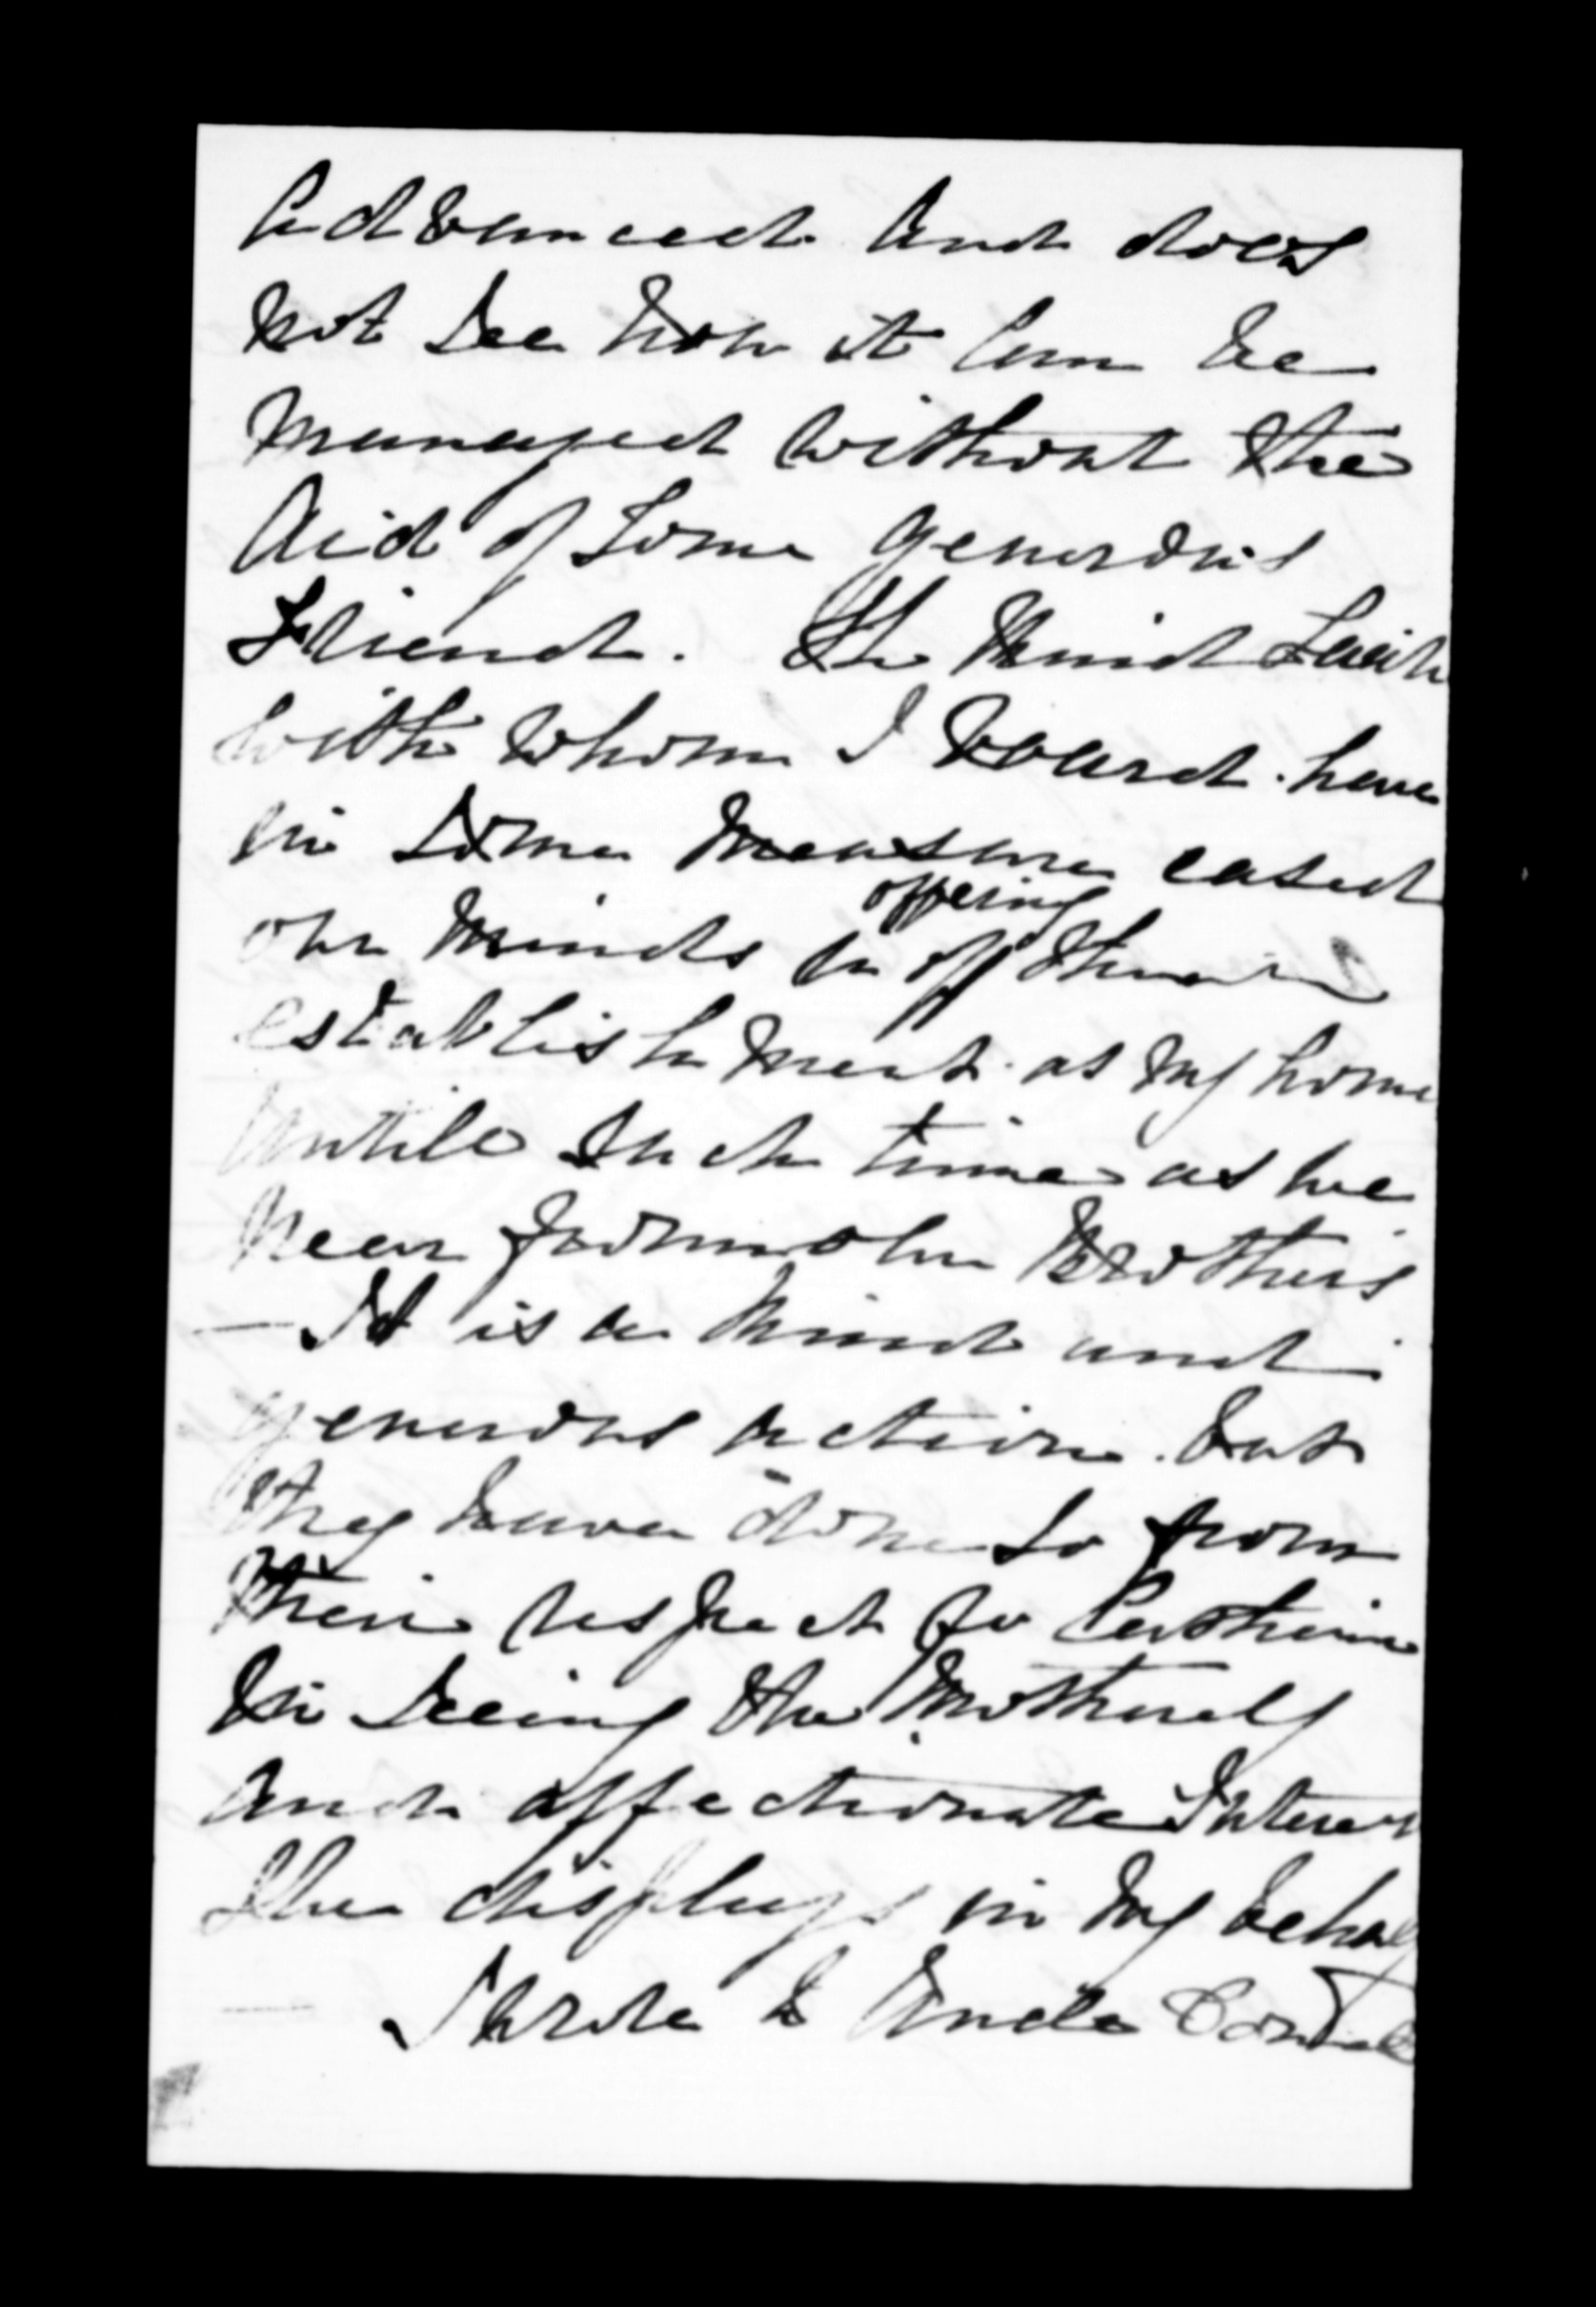 Advanced and does
not see how it can be
managed without the
Aid of some generous
Friend. The Kind
with whom I board. have
in some measure eased
our minds in offering their
establishment as my home
until such time as we
hear from our Brothers
— It is a kind and
generous action. but
they have done so from
their respect for Catherine
in seeing the Motherly
and affectionate Interest
she displays in my behalf
— I wrote to Uncle